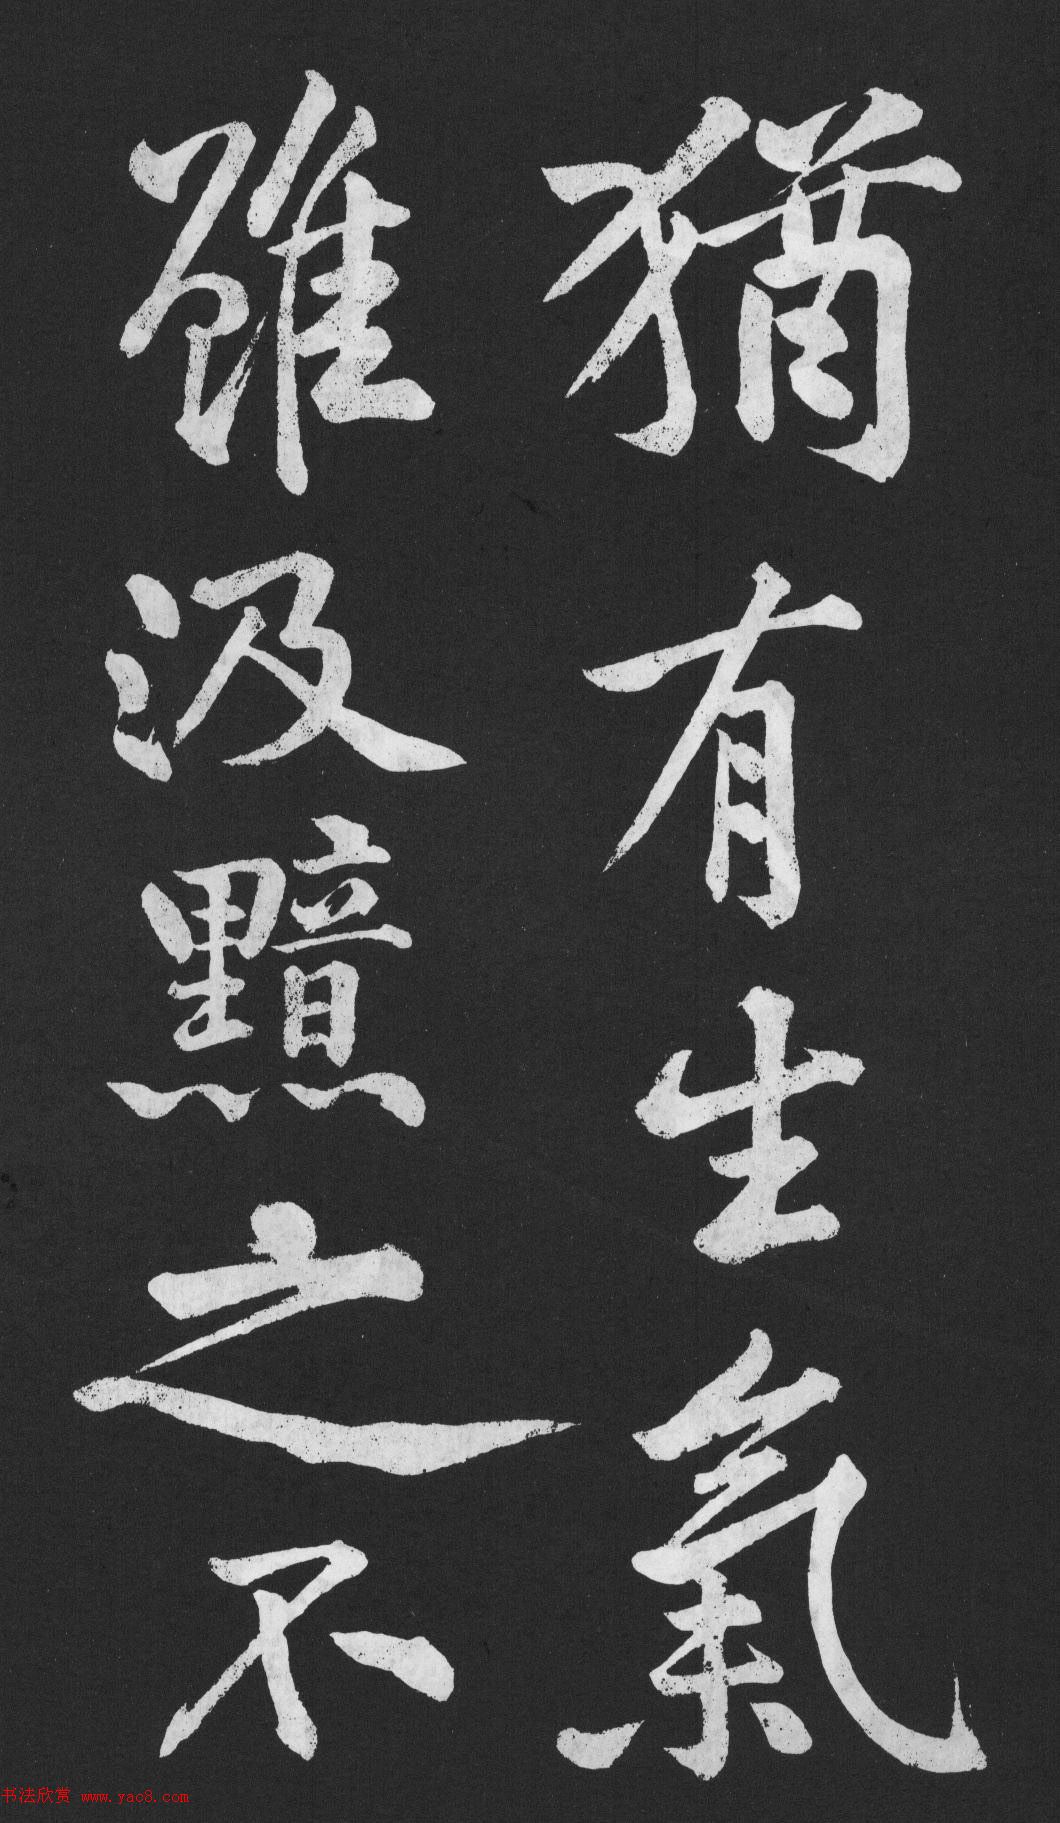 猶有生氣
雖汲黯之不
书法欣赏 www.yac8.com